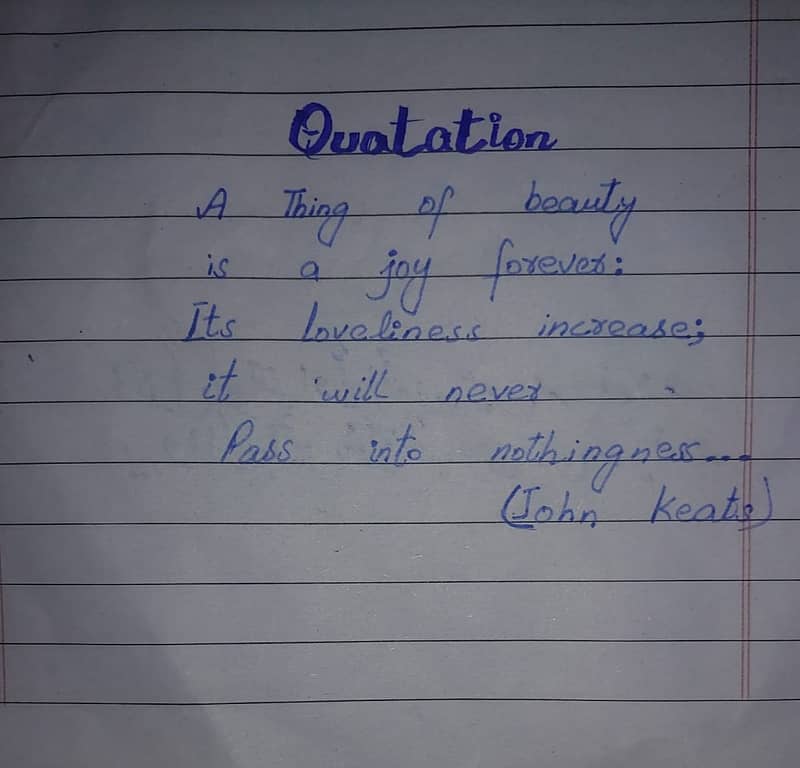 Quatation
A Thing of beauty
is a joy forever:
Its Loveliness increase;
it will never
Pass into nothingness...
(John Keats)